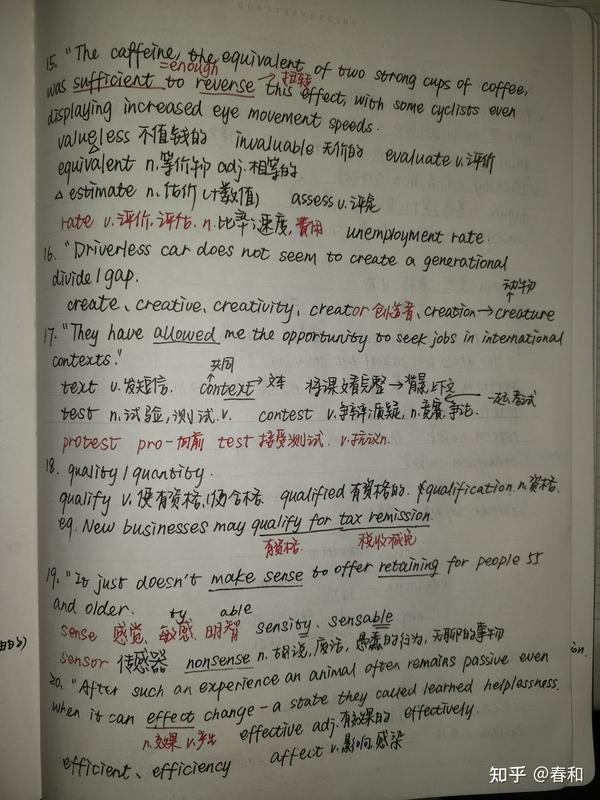 15. "The caffeine, the equivalent of two strong cups of coffee,
=enough
was sufficient to reverse → 扭转 this effect, with some cyclists even
displaying increased eye movement speeds.
valueless 不值钱的 invaluable 无价的 evaluate v.评价
equivalent n.等价物 adj.相等的
△ estimate n.估价(计数值) assess v.评定
rate v.评价,评估. n.比率;速度,费用 unemployment rate.
16. "Driverless car does not seem to create a generational
divide/gap.
动物
create、creative、creativity、creator 创造者、creation→creature
17. "They have allowed me the opportunity to seek jobs in international
contexts."
共同
text v.发短信. context→文本 将课文看完整→背景,下文
test n.试验,测试.v. contest v.争辩;质疑, n.竞赛,争论. 一起,考试
protest pro-向前 test 接受测试. v.抗议n.
18. quality/quantity.
qualify v.使有资格,使合格. qualified 有资格的. qualification.n.资格.
eg. New businesses may qualify for tax remission.
有资格. 税收减免
19. "It just doesn't make sense to offer retaining for people 55
and older. ty able
sense 感觉、敏感、明智 sensity、sensable
sensor 传感器 nonsense n.胡说,废话,愚蠢的行为,无聊的事物
20. "After such an experience an animal often remains passive even
when it can effect change - a state they called learned helplessness.
n.效果 v.产生 effective adj.有效果的 effectively.
efficient、efficiency affect v.影响.感染
ion.
知乎 @春和